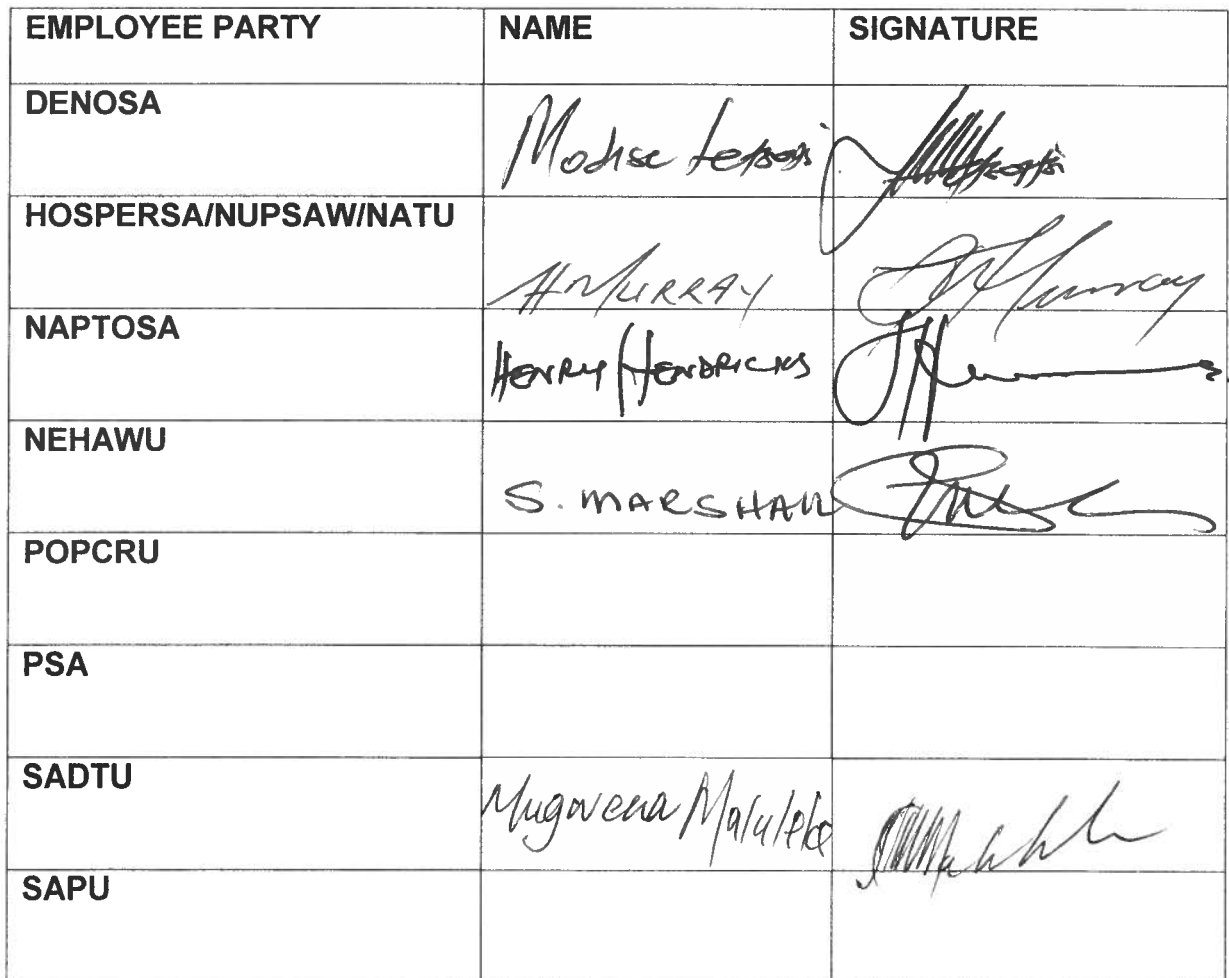 EMPLOYEE PARTY NAME SIGNATURE
DENOSA Modise
HOSPERSA/NUPSAW/NATU
H MURRAY Murray
NAPTOSA
HENRY HENDRICKS
NEHAWU
S. MARSHALL
POPCRU
PSA
SADTU
Mugwena Maluleke
SAPU